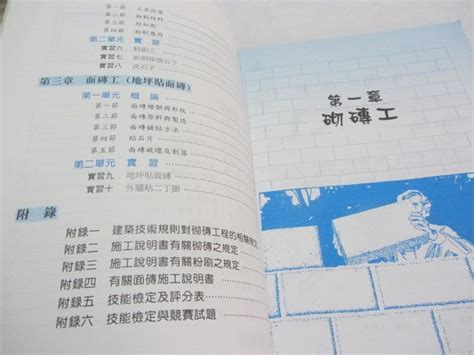 第一節 工具設備
第二節 粉刷材料
第四節 粉刷應用
第二單元 實習
實習六 粉刷工
實習八 洗石子
第三章 面磚工(地坪貼面磚)
第一單元 概論
第一節 面磚種類與形狀
第二節 面磚原料與製造
第三節 面磚鋪貼方法
第四節 貼石片
第五節 面磚破壞及剝落
第二單元 實習
實習九 地坪貼面磚
實習十 外牆貼二丁掛
附錄
附錄一 建築技術規則對砌磚工程的相關規定
附錄二 施工說明書有關砌磚之規定
附錄三 施工說明書有關粉刷之規定
附錄四 有關面磚施工說明書
附錄五 技能檢定及評分表
附錄六 技能檢定與競賽試題
第一章
砌磚工